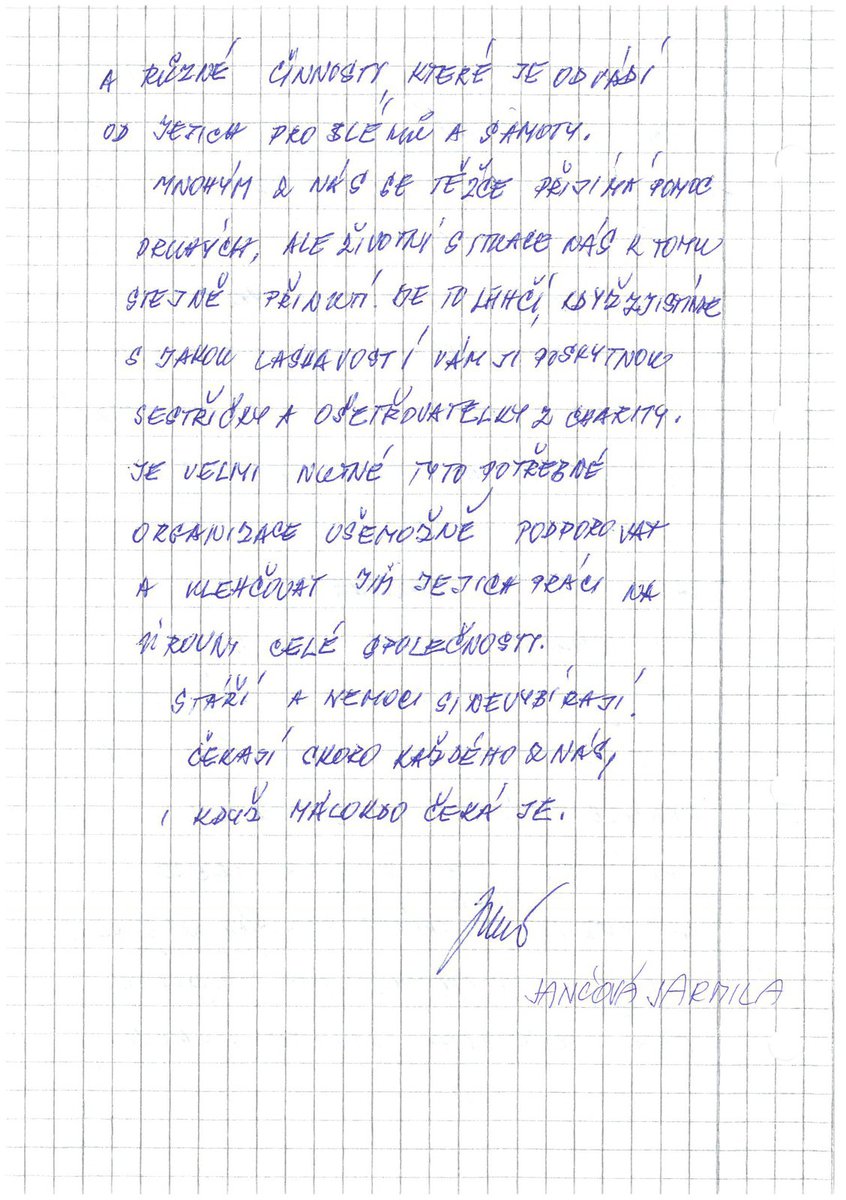 A RŮZNÉ ČINNOSTI, KTERÉ JE ODVÁDÍ
OD JEJICH PROBLÉMŮ A SAMOTY.
MNOHÝM Z NÁS SE TĚŽCE PŘIJÍMÁ POMOC
DRUHÝCH, ALE ŽIVOTNÍ SITUACE NÁS K TOMU
STEJNĚ PŘINUTÍ. JE TO LEHČÍ, KDYŽ ZJISTÍME
S JAKOU LASKAVOSTÍ VÁM JI POSKYTNOU
SESTŘIČKY A OŠETŘOVATELKY Z CHARITY.
JE VELMI NUTNÉ TYTO POTŘEBNÉ
ORGANIZACE VŠEMOŽNĚ PODPOROVAT
A ULEHČOVAT JIM JEJICH PRÁCI NA
ÚROVNI CELÉ SPOLEČNOSTI.
STÁŘÍ A NEMOCI SI NEVYBÍRAJÍ.
ČEKAJÍ SKORO KAŽDÉHO Z NÁS,
I KDYŽ MÁLOKDO ČEKÁ JE.
JANČOVÁ JARMILA